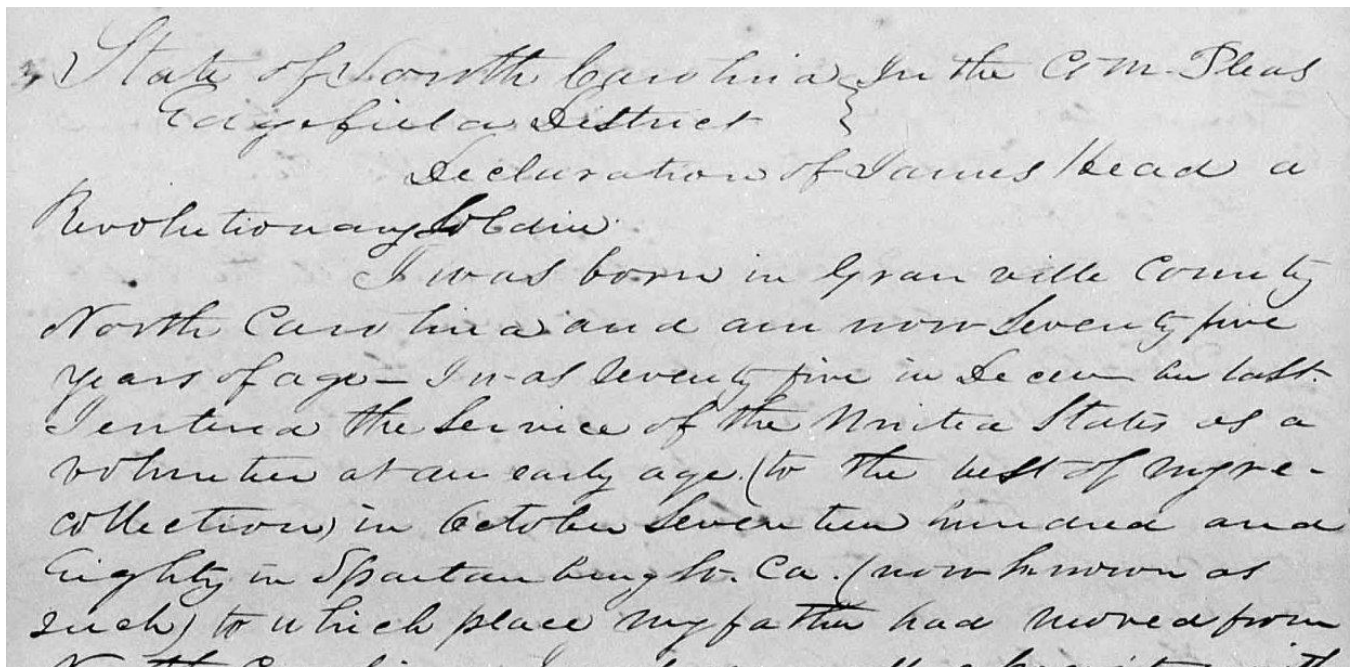 State of South Carolina } In the Com. Pleas
Edgefield District
Declaration of James Head a
Revolutionary Soldier
I was born in Granville County
North Carolina and am now Seventy five
years of age — I was Seventy five in December last.
I entered the Service of the United States as a
volunteer at an early age (to the best of my re-
collection) in October Seventeen hundred and
Eighty in Spartanburg So. Ca. (now known as
such) to which place my father had moved from
North Carolina